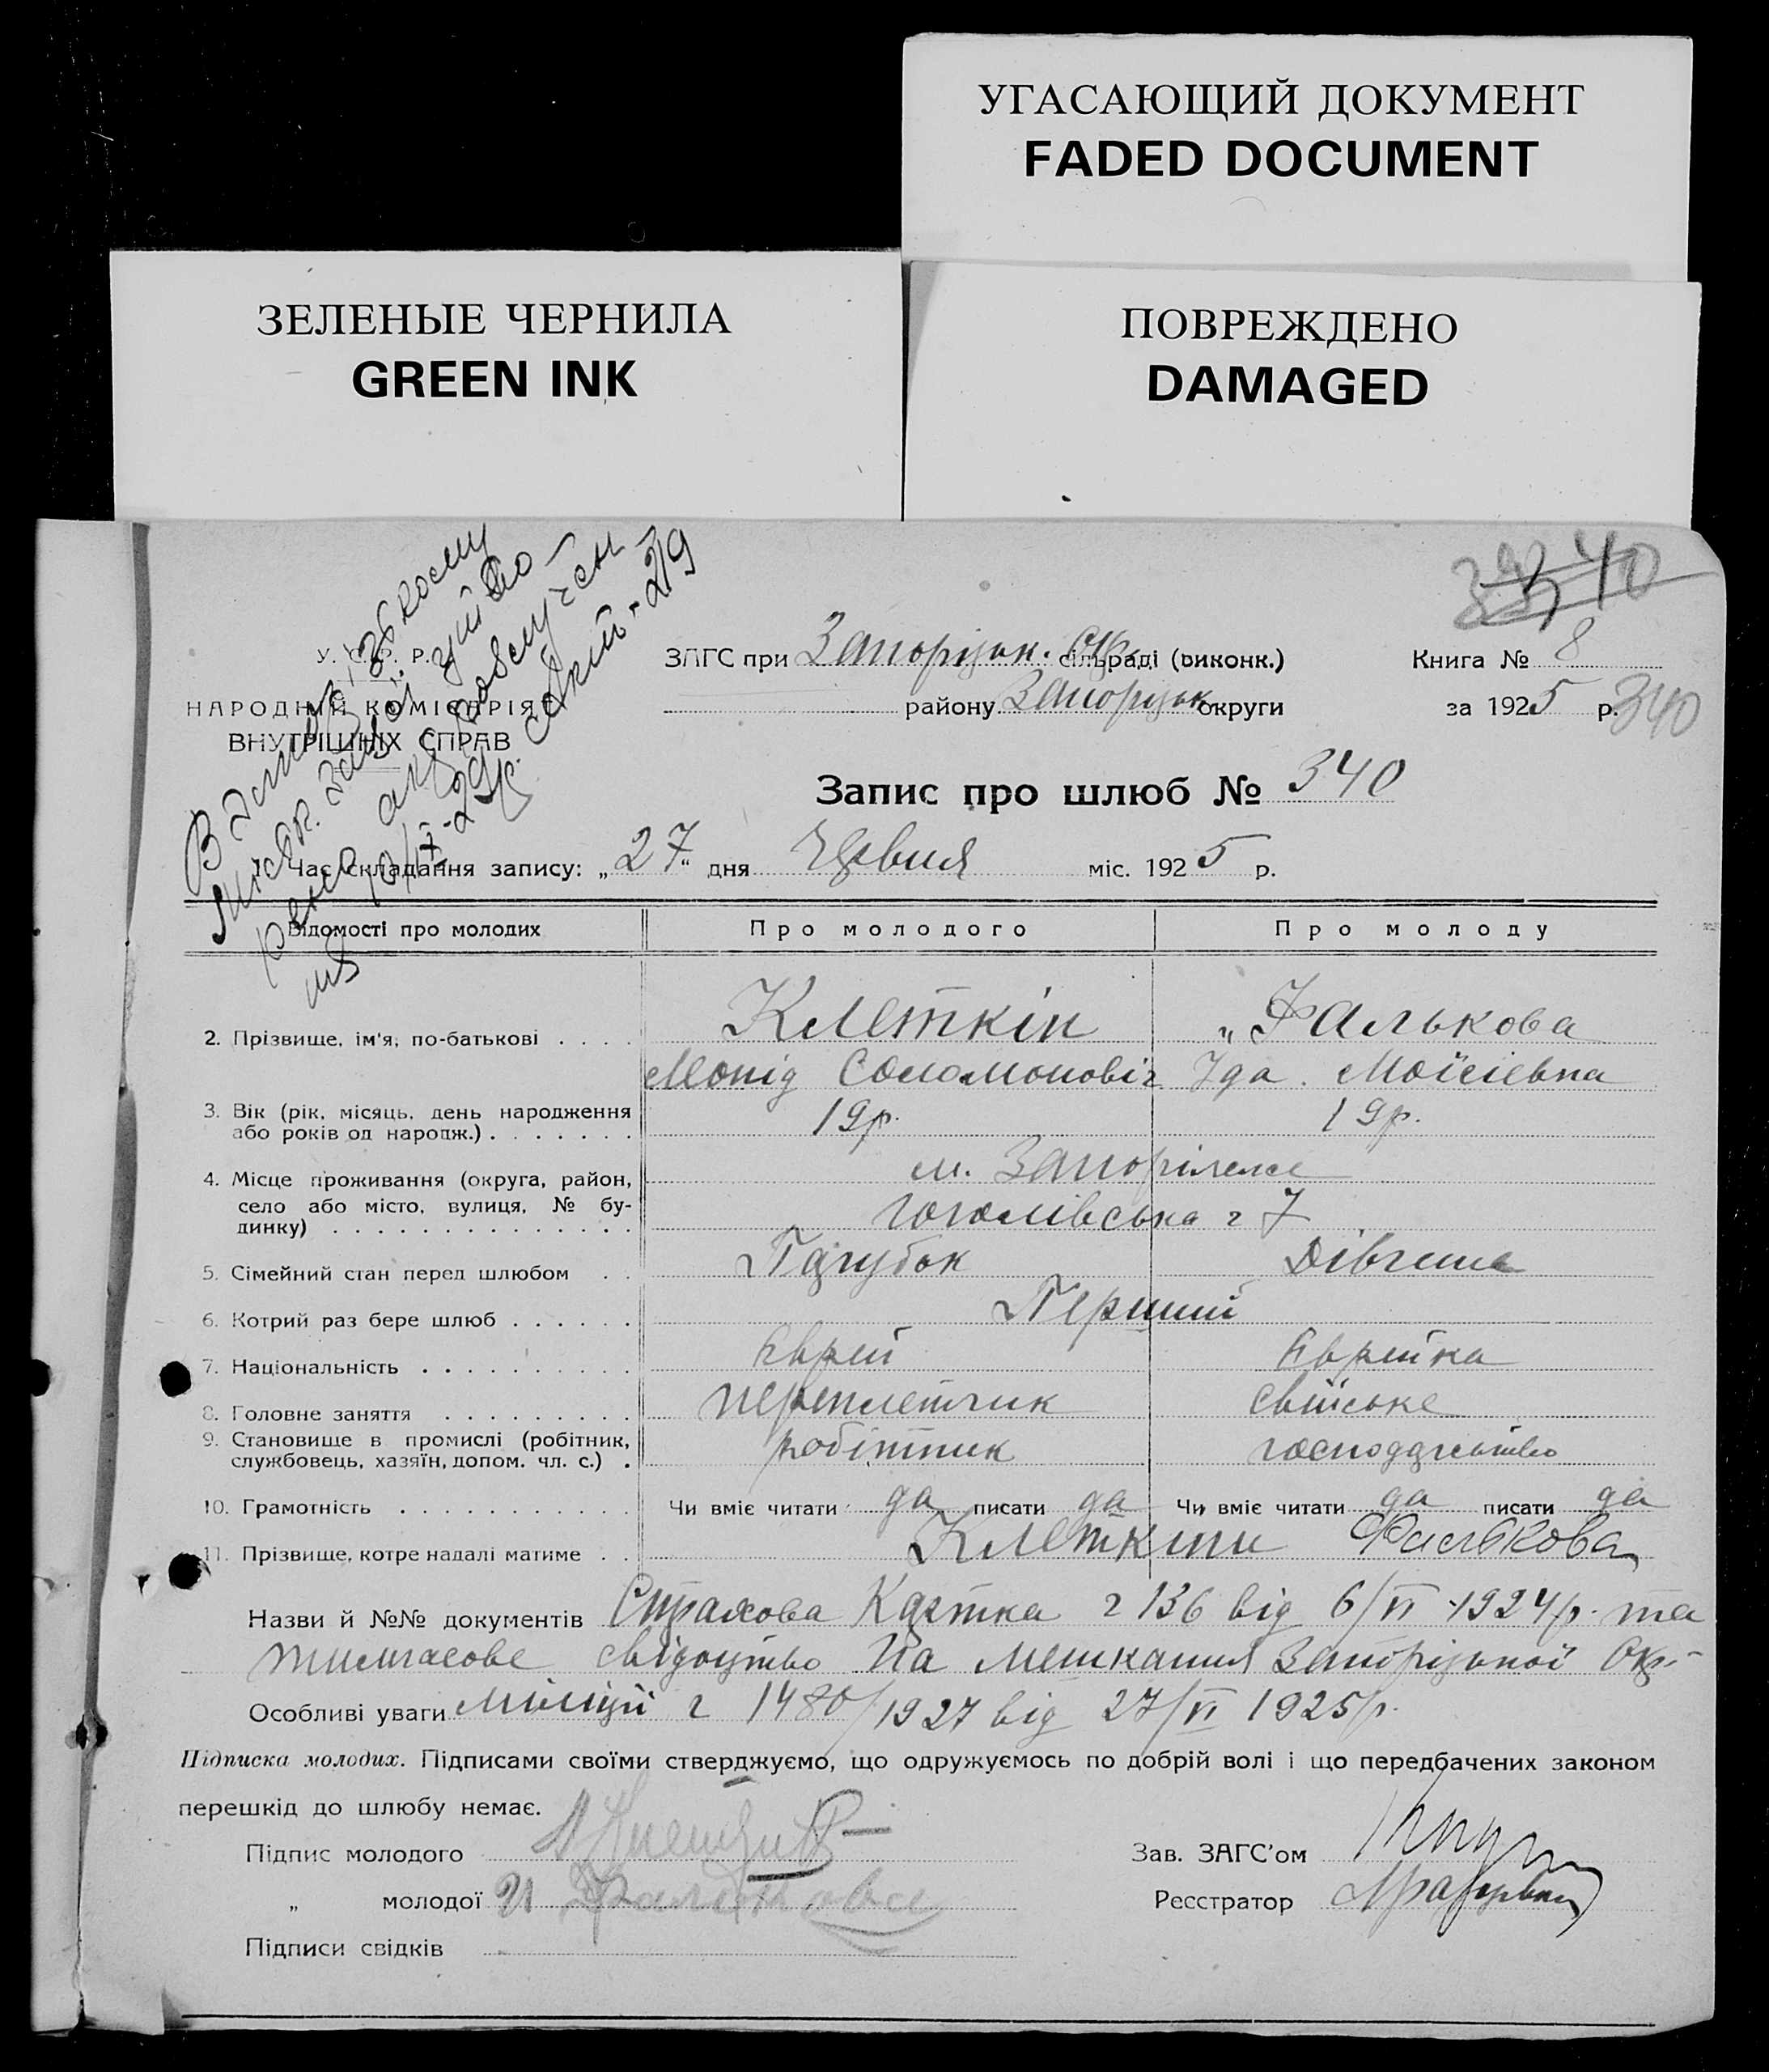 УГАСАЮЩИЙ ДОКУМЕНТ
FADED DOCUMENT
ЗЕЛЕНЫЕ ЧЕРНИЛА
GREEN INK
ПОВРЕЖДЕНО
DAMAGED
340
У. С. Р. Р.
НАРОДНІЙ КОМІСАРІЯТ
ВНУТРІШНІХ СПРАВ
ЗАГС при Запорізьк. Окр. сільраді (виконк.)
району Запорізьк округи
Книга № 8
за 1925 р. 340
Запис про шлюб № 340
1. Час складання запису: „27“ дня Червня міс. 1925 р.
Відомості про молодих Про молодого Про молоду
2. Прізвище, ім'я, по-батькові . . . . Клеткін „Фалькова
Леонід Соломоновіч Іда. Мойсіевна
3. Вік (рік, місяць, день народження
або років од народж.) . . . . . . . 19р. 19р.
4. Місце проживання (округа, район, м. Запоріжже
село або місто, вулиця, № бу-
динку) . . . . . . . . . . . . . . Гоголівська ч 7
5. Сімейний стан перед шлюбом . . Парубок Дівчина
6. Котрий раз бере шлюб . . . . . . Перший
7. Національність . . . . . . . . . . Еврей Еврейка
8. Головне заняття . . . . . . . . . переплетчик свійське
9. Становище в промислі (робітник,
службовець, хазяїн, допом. чл. с.) . робітник господарство
10. Грамотність . . . . . . . . . . . Чи вміє читати да писати да Чи вміє читати да писати да
11. Прізвище, котре надалі матиме . . Клеткини Фалькова
Назви й №№ документів Страхова Картка ч 136 від 6/VI-1924р. та
тимчасове свідоцтво на мешкання Запорізької Окр.
Особливі уваги міліції ч 1480/1927 від 27/VI 1925р.
Підписка молодих. Підписами своїми стверджуємо, що одружуємось по добрій волі і що передбачених законом
перешкід до шлюбу немає.
Підпис молодого Зав. ЗАГС'ом
„ молодої И Фалькова Реєстратор
Підписи свідків